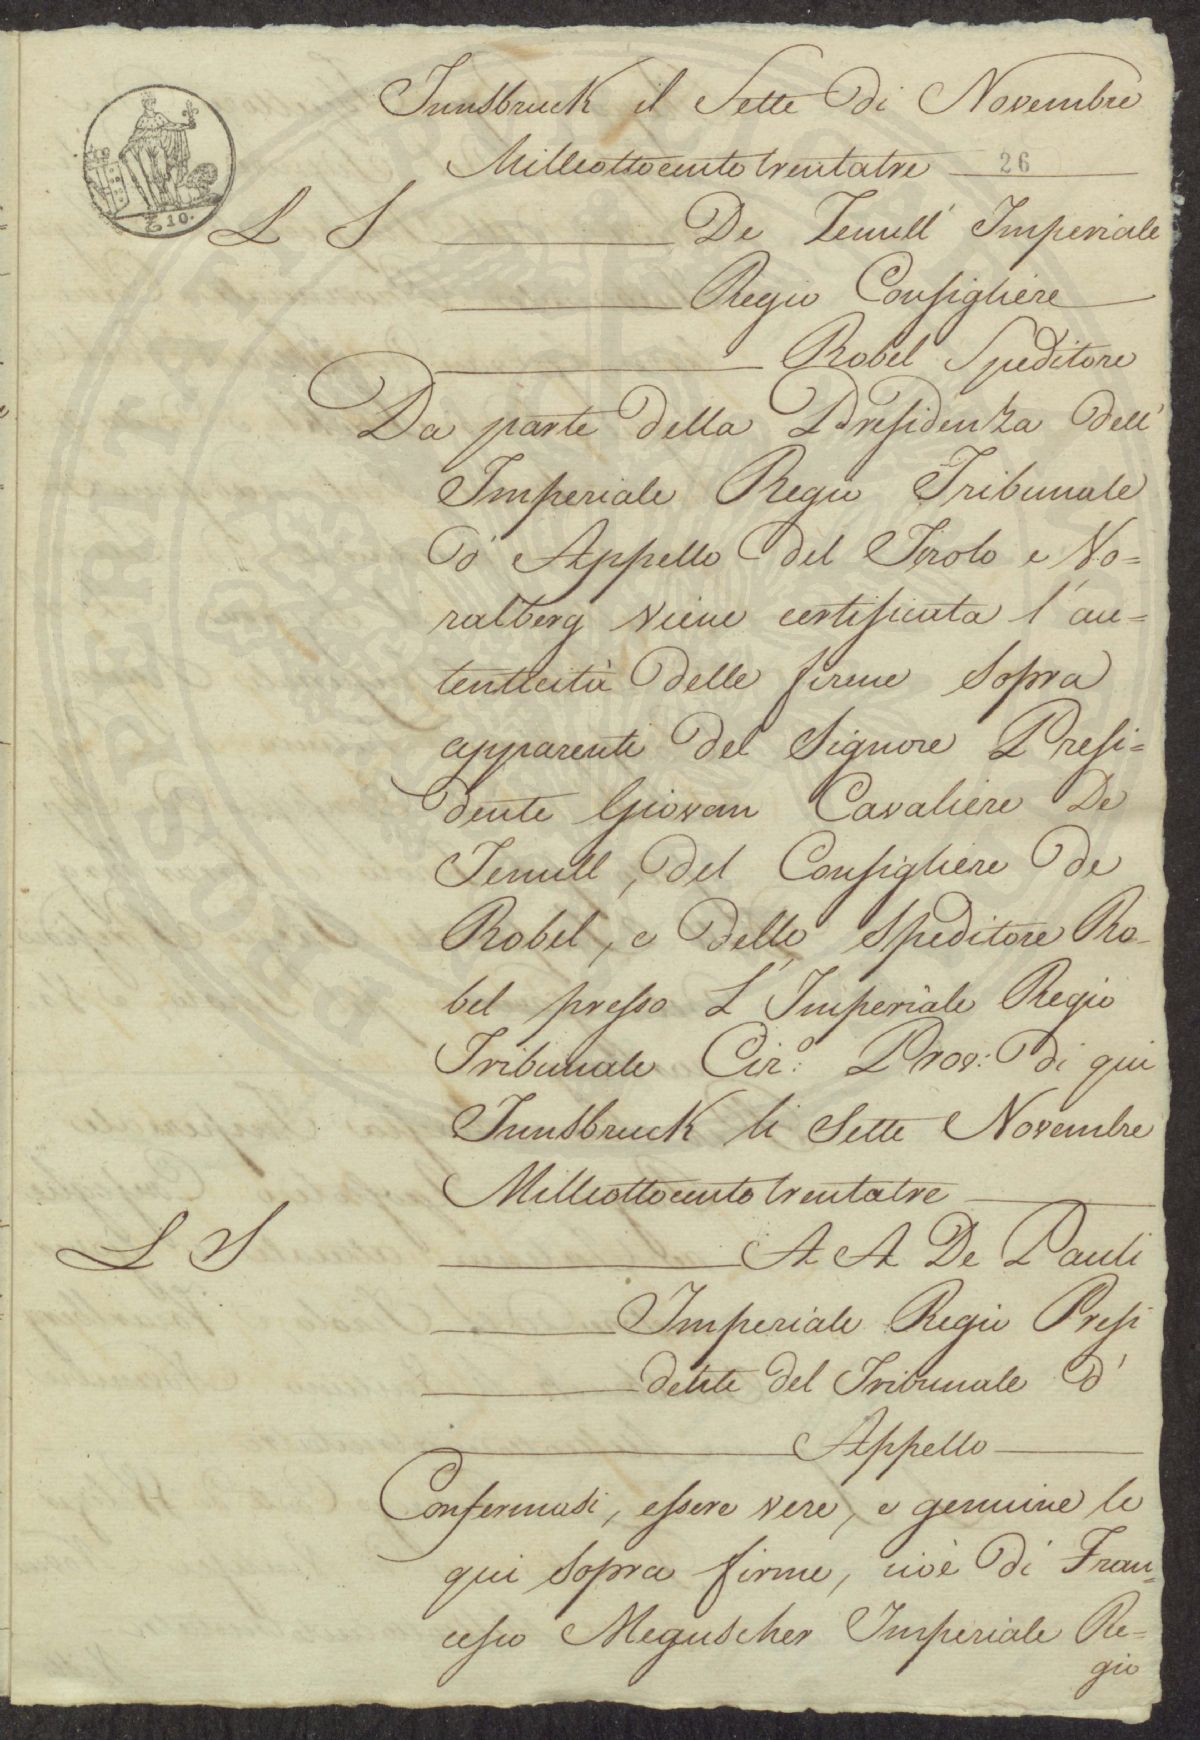 Innsbruck il Sette di Novembre
Milleottocento trentatre
26
₰ 10.
L S
De Temell' Imperiale
Regio Consigliere
Robel Speditore
Da parte della Presidenza dell'
Imperiale Regio Tribunale
d' Appello del Tirolo e Vo=
ralberg viene certificata l'au=
tenticità delle firme sopra
apparenti del Signore Presi=
dente Giovan Cavaliere De
Temell, del Consigliere de
Robel, e dello Speditore Ro-
bel presso L'Imperiale Regio
Tribunale Cir:o Prov: di qui
Innsbruck li Sette Novembre
Milleottocento trentatre
L S
A A De Pauli
Imperiale Regio Presi
dente del Tribunale d'
Appello
Confermasi, essere vere, e genuine le
qui sopra firme, cioè di Fran=
cesco Meguscher Imperiale Re=
gio